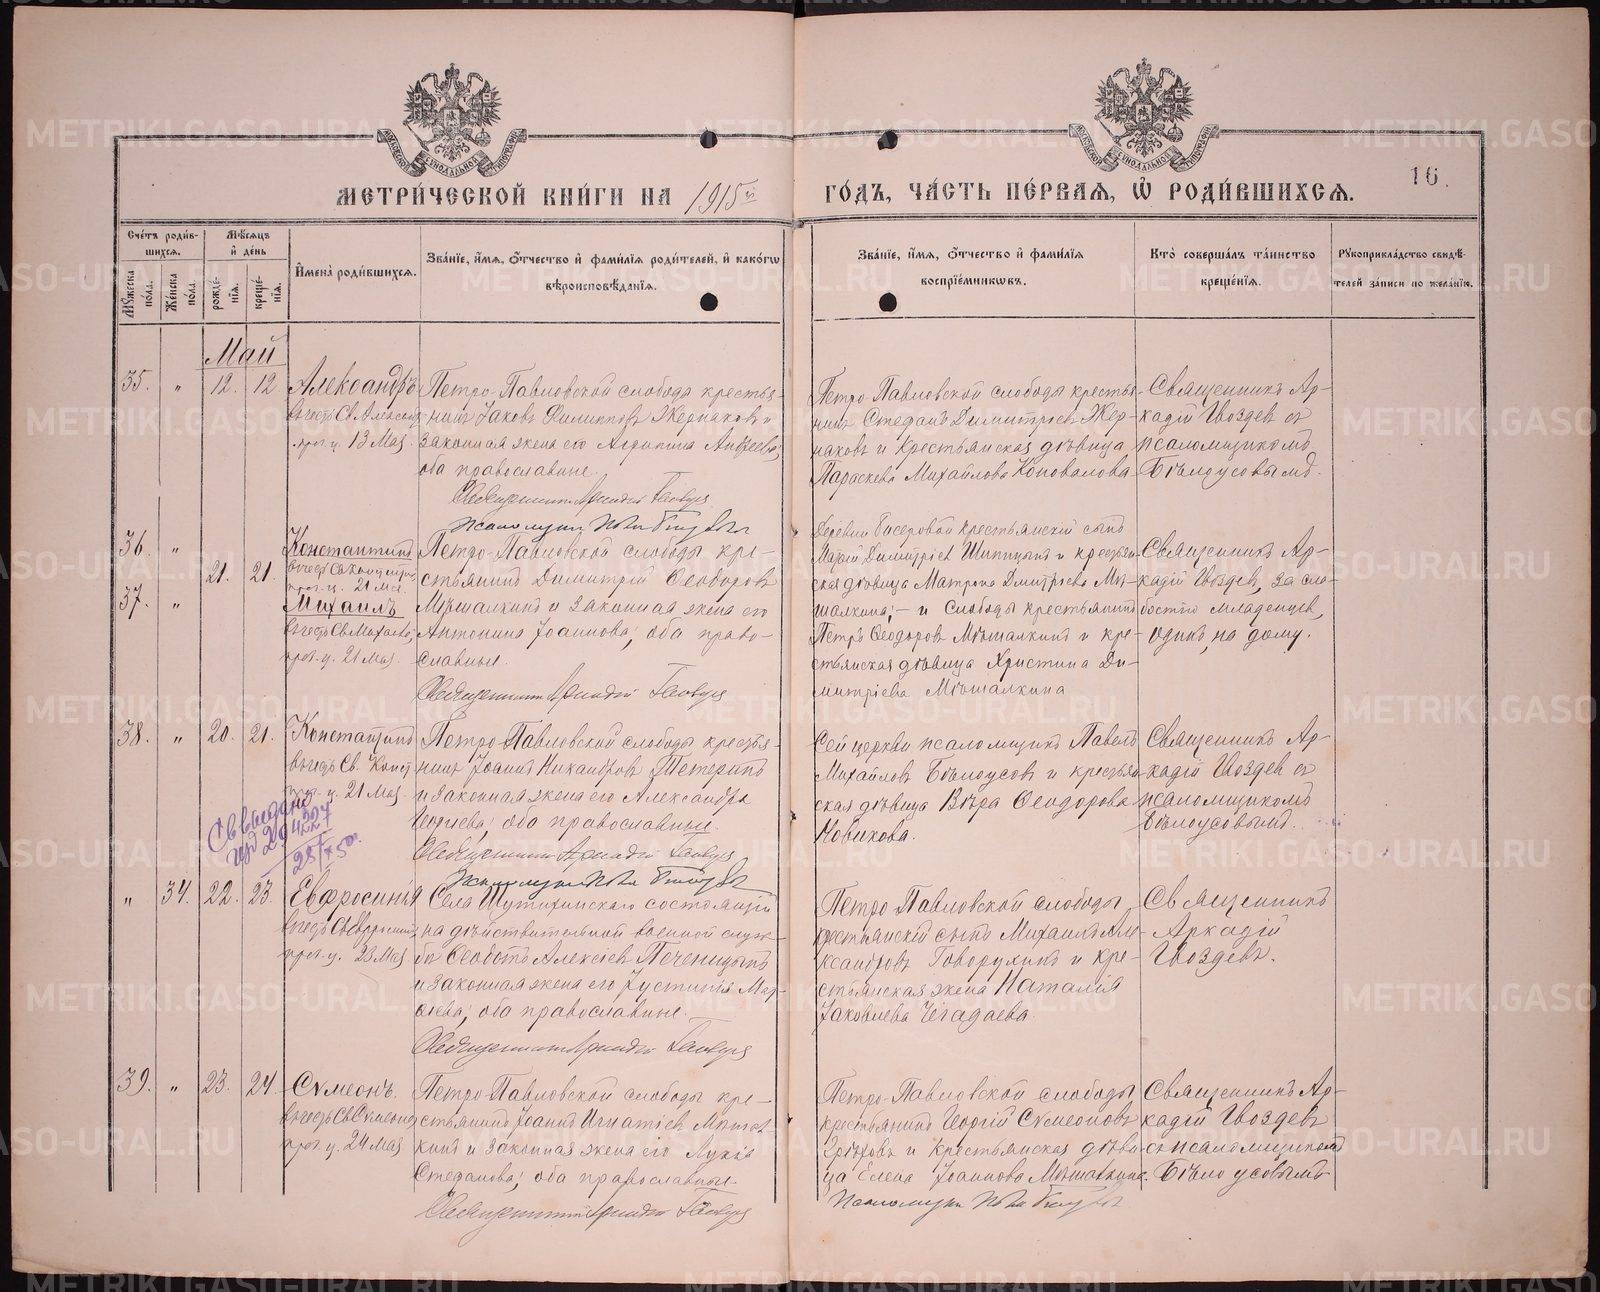 МЕТРИ́ЧЕСКОЙ КНИ́ГИ НА 1915й
ГО́ДЪ, ЧА́СТЬ ПЕ́РВАЯ, Ѿ РОДИ́ВШИХСЯ.
16.
Сче́тъ роди́в-
шихся.
Мѣ́сяцъ
и҆ де́нь
Му́жеска по́ла.
Же́нска по́ла.
рожде́-
нїя.
креще́-
нїя.
И҆мена̀ роди́вшихся.
Зва́нїе, и҆́мя, ѻ҆́тчество и҆ фами́лїя роди́телей, и҆ како́гѡ
вѣроисповѣ́данїя.
Зва́нїе, и҆́мя, ѻ҆́тчество и҆ фами́лїя
воспрїе́мникѡвъ.
Кто̀ соверша́лъ та́инство
креще́нїя.
Рꙋкоприкла́дство свидѣ́-
телей за́писи по жела́нїю.
Май
35. " 12. 12
Александръ
въ честь Св.
прот. ц. 13 Мая.
Петро-Павловской слободы крестья-
нинъ Іаковъ Филипповъ Жернаковъ и
законная жена его Агрипина Андреева;
оба православные.
Священникъ Аркадій Гвоздевъ
Псаломщикъ
Петро-Павловской слободы крестья-
нинъ Стефанъ Димитріевъ Жер-
наковъ и крестьянская дѣвица
Параскева Михайлова Коновалова
Священникъ Ар-
кадій Гвоздевъ съ
псаломщикомъ
Бѣлоусовымъ.
36. "
37. "
21. 21.
Константинъ
прот. ц. 21 Мая
Михаилъ
въ честь Св. Михаила,
прот. ц. 21 Мая.
Петро-Павловской слободы кре-
стьянинъ Димитрій Ѳеодоровъ
Мѣшалкинъ и законная жена его
Антонина Іоаннова; оба право-
славные.
Священникъ Аркадій Гвоздевъ
Деревни крестьянскій сынъ
Димитріевъ Шипицынъ и крестьян-
ская дѣвица Матрона Димитріева Мѣ-
шалкина; — и слободы крестьянинъ
Петръ Ѳеодоровъ Мѣшалкинъ и кре-
стьянская дѣвица Христина Ди-
митріева Мѣшалкина
Священникъ Ар-
кадій Гвоздевъ, за сла-
бостію младенцевъ,
одинъ, на дому.
38. " 20. 21.
Константинъ
въ честь Св. Конст.
прот. ц. 21 Мая
Петро-Павловской слободы крестья-
нинъ Іоаннъ Никандровъ Тетеринъ
и законная жена его Александра
Георгіева; оба православные.
Священникъ Аркадій Гвоздевъ
Псаломщикъ
Сей церкви псаломщикъ Павелъ
Михайловъ Бѣлоусовъ и крестьян-
ская дѣвица Вѣра Ѳеодорова
Новикова.
Священникъ Ар-
кадій Гвоздевъ съ
псаломщикомъ
Бѣлоусовымъ.
" 34. 22. 23.
Евфросинія
прот. ц. 23 Мая
Села Шутихинскаго состоящій
на дѣйствительной военной служ-
бѣ Ѳеодотъ Алексіевъ Печеницынъ
и законная жена его Іустинія Мар-
оба православные.
Священникъ Аркадій Гвоздевъ
Петро Павловской слободы
крестьянскій сынъ Михаилъ Але-
ксандровъ Говорухинъ и кре-
стьянская жена Наталія
Іаковлева Чегадаева
Священникъ
Аркадій
Гвоздевъ.
39. " 23. 24.
Сѵмеонъ.
въ честь Св. Сѵмеона,
прот. ц. 24 Мая
Петро-Павловской слободы кре-
стьянинъ Іоаннъ Игнатіевъ
кинъ и законная жена его Лукія
Стефанова; оба православные.
Священникъ Аркадій Гвоздевъ
Петро-Павловской слободы
крестьянинъ Георгій Сѵмеоновъ
и крестьянская дѣви-
ца Елена Іоаннова Мѣшалкина.
Псаломщикъ
Священникъ Ар-
кадій Гвоздевъ
съ псаломщикомъ
Бѣлоусовымъ